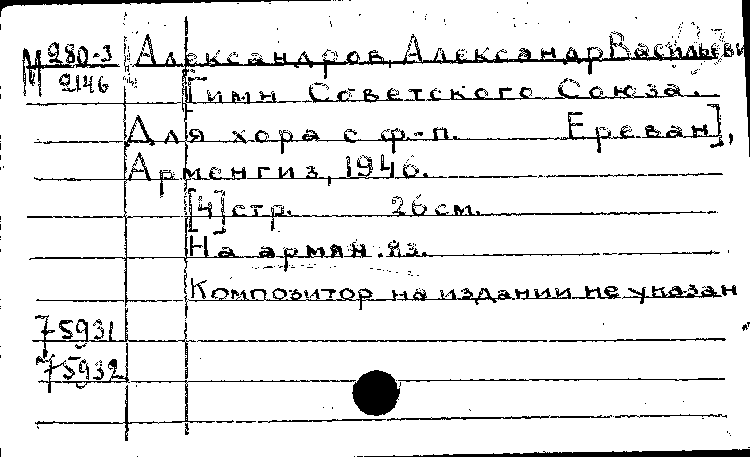 М 280-3 Александров, Александр Васильеви
2146 Гимн Советского Союза.
Для хора с ф-п. Ереван],
Арменгиз, 1946.
[4] стр. 26 см.
На армян. яз.
Композитор на издании не указан
75931
75932